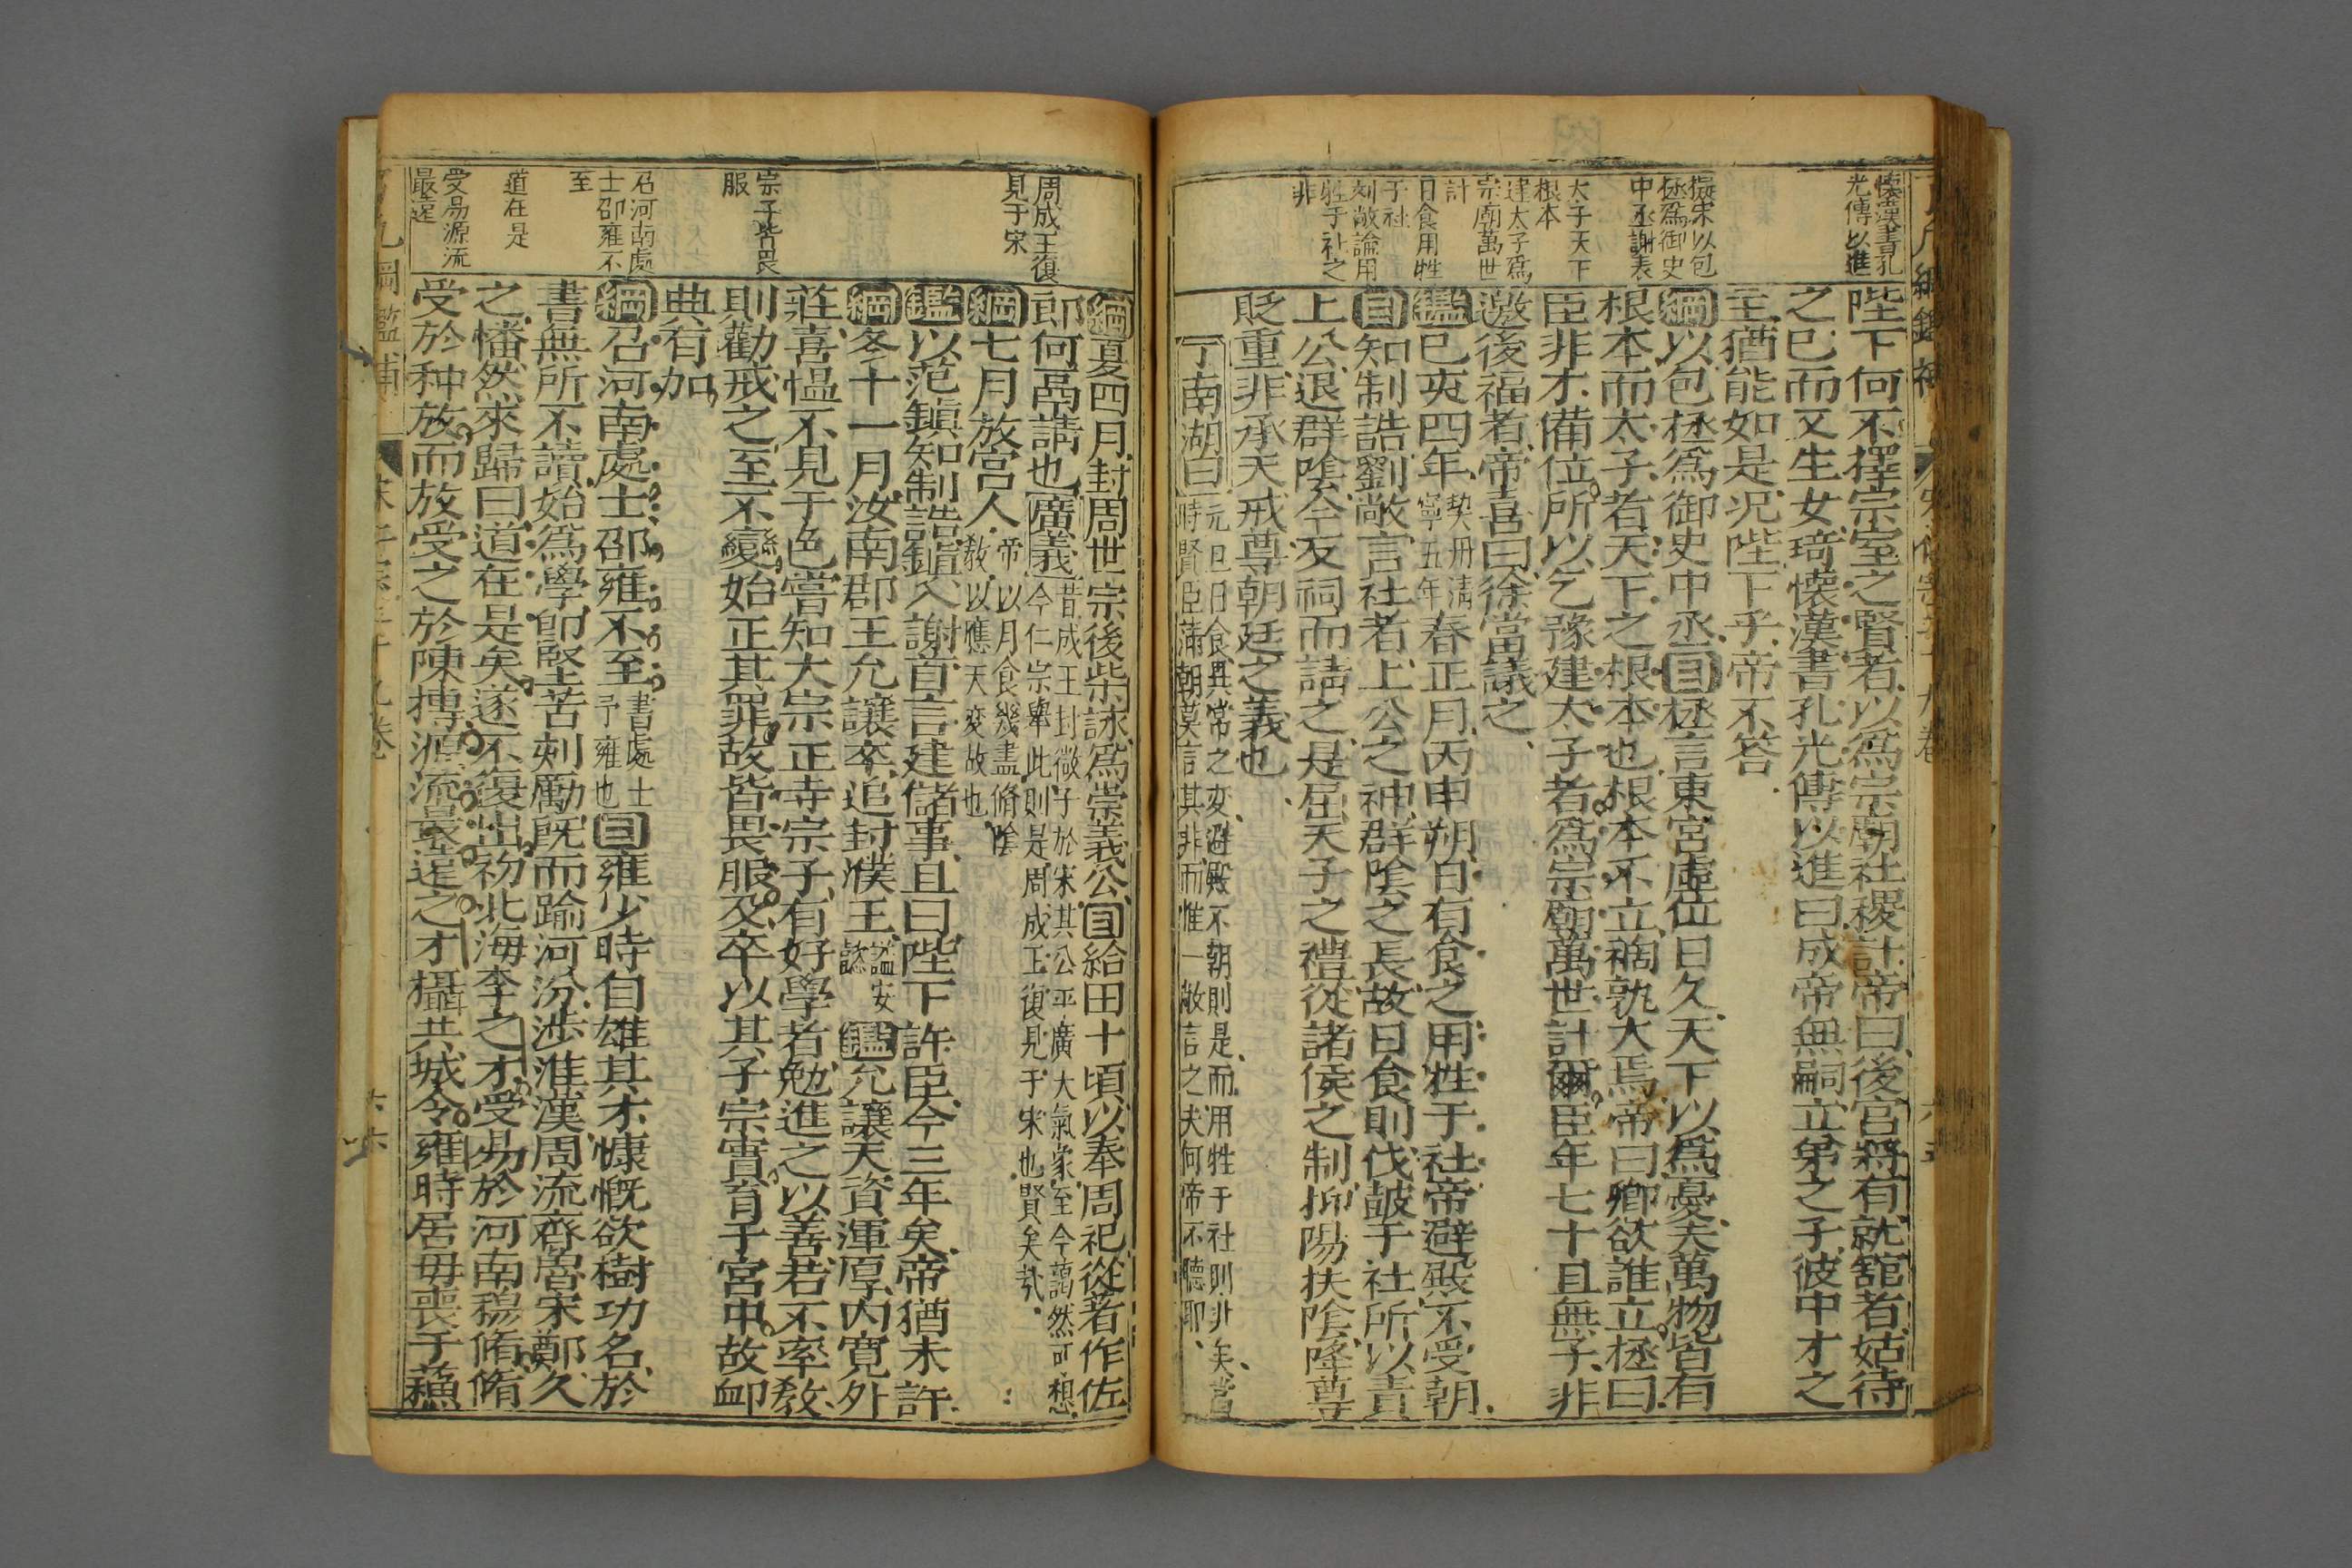 懷漢書孔
光傳以進
擬宋以包
拯爲御史
中丞謝表
太子天下
根本
建太子爲
宗廟萬世
計
日食用牲
于社
劉敞論用
牲于社之
非
陛下何不擇宗室之賢者以爲宗廟社稷計帝曰後宮將有就舘者姑待
之已而又生女琦懷漢書孔光傳以進曰成帝無嗣立弟之子彼中才之
主猶能如是况陛下乎帝不答
綱以包拯爲御史中丞目拯言東宮虛位日久天下以爲憂夫萬物皆有
根本而太子者天下之根本也根本不立禍孰大焉帝曰卿欲誰立拯曰
臣非才備位所以乞豫建太子者爲宗廟萬世計爾臣年七十且無子非
邀後福者帝喜曰徐當議之
鑑己亥四年契丹清寧五年春正月丙申朔日有食之用牲于社帝避殿不受朝
目知制誥劉敞言社者上公之神群陰之長故日食則伐皷于社所以責
上公退群陰今反祠而請之是屈天子之禮從諸侯之制抑陽扶陰降尊
貶重非承天戒尊朝廷之義也
丁南湖曰元旦日食異常之变避殿不朝則是而用牲于社則非矣當
時賢臣滿朝莫言其非而惟一敞言之夫何帝不聽耶
周成王復
見于宋
宗子皆畏
服
召河南處
士邵雍不
至
道在是
受易源流
最遠
綱夏四月封周世宗後柴詠爲崇義公目給田十頃以奉周祀從著作佐
郎何鬲請也廣義昔成王封微子於宋其公平廣大氣象至今藹然可想
今仁宗舉此則是周成王復見于宋也賢矣哉
綱七月放宮人帝以月食幾盡脩陰
教以應天变故也
鑑以范鎮知制誥鎮入謝首言建儲事且曰陛下許臣今三年矣帝猶未許
綱冬十一月汝南郡王允讓卒追封濮王謚安懿鑑允讓天資渾厚内寬外
莊喜愠不見于色嘗知大宗正寺宗子有好學者勉進之以善若不率教
則勸戒之至不變始正其罪故皆畏服及卒以其子宗實育于宮中故卹
典有加
綱召河南處士邵雍不至書處士予雍也目雍少時自雄其才慷慨欲樹功名於
書無所不讀始爲學卽堅苦刻勵旣而踰河汾涉淮漢周流齊魯宋鄭久
之幡然來歸曰道在是矣遂不復出初北海李之才受易於河南穆脩脩
受於种放而放受之於陳摶源流最遠之才攝共城令雍時居母喪于蘓